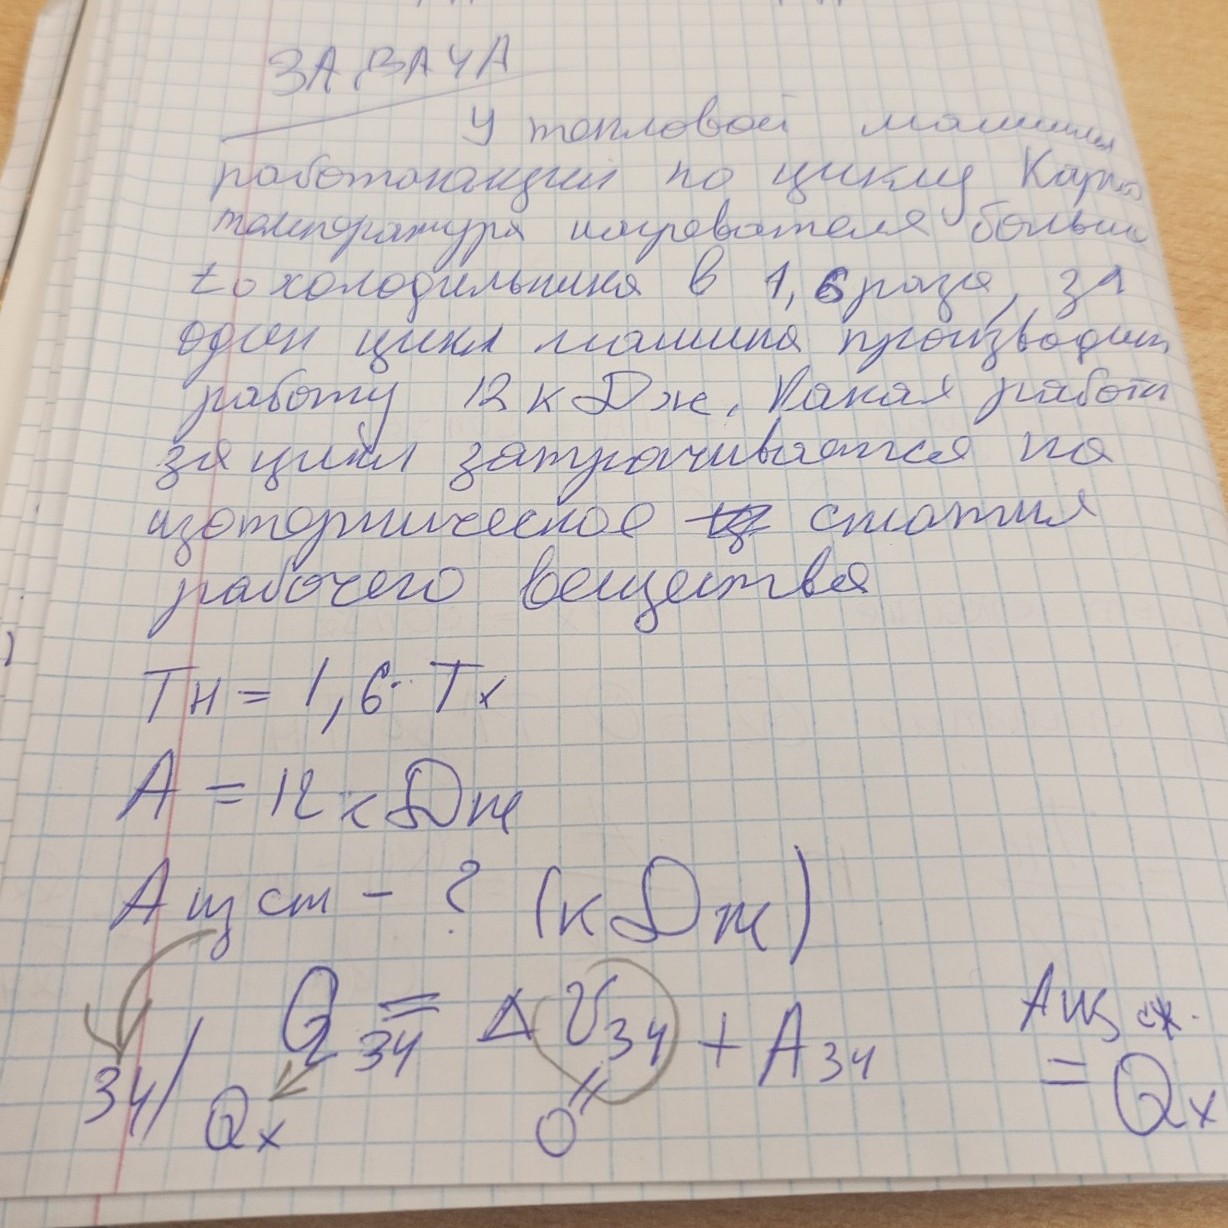 ЗАДАЧА
У тепловой машины
работающей по циклу Карно
температура нагревателя больше
t₀ холодильника в 1,6 раза, за
один цикл машина производит
работу 12 кДж. Какая работа
за цикл затрачивается на
изотермическое сжатия
рабочего вещества
Tн = 1,6 · Tх
A = 12 кДж
Aиз сж - ? (кДж)
34/ Q₃₄ = ΔU₃₄ + A₃₄
Qх
0
Aиз сж.
= Qх